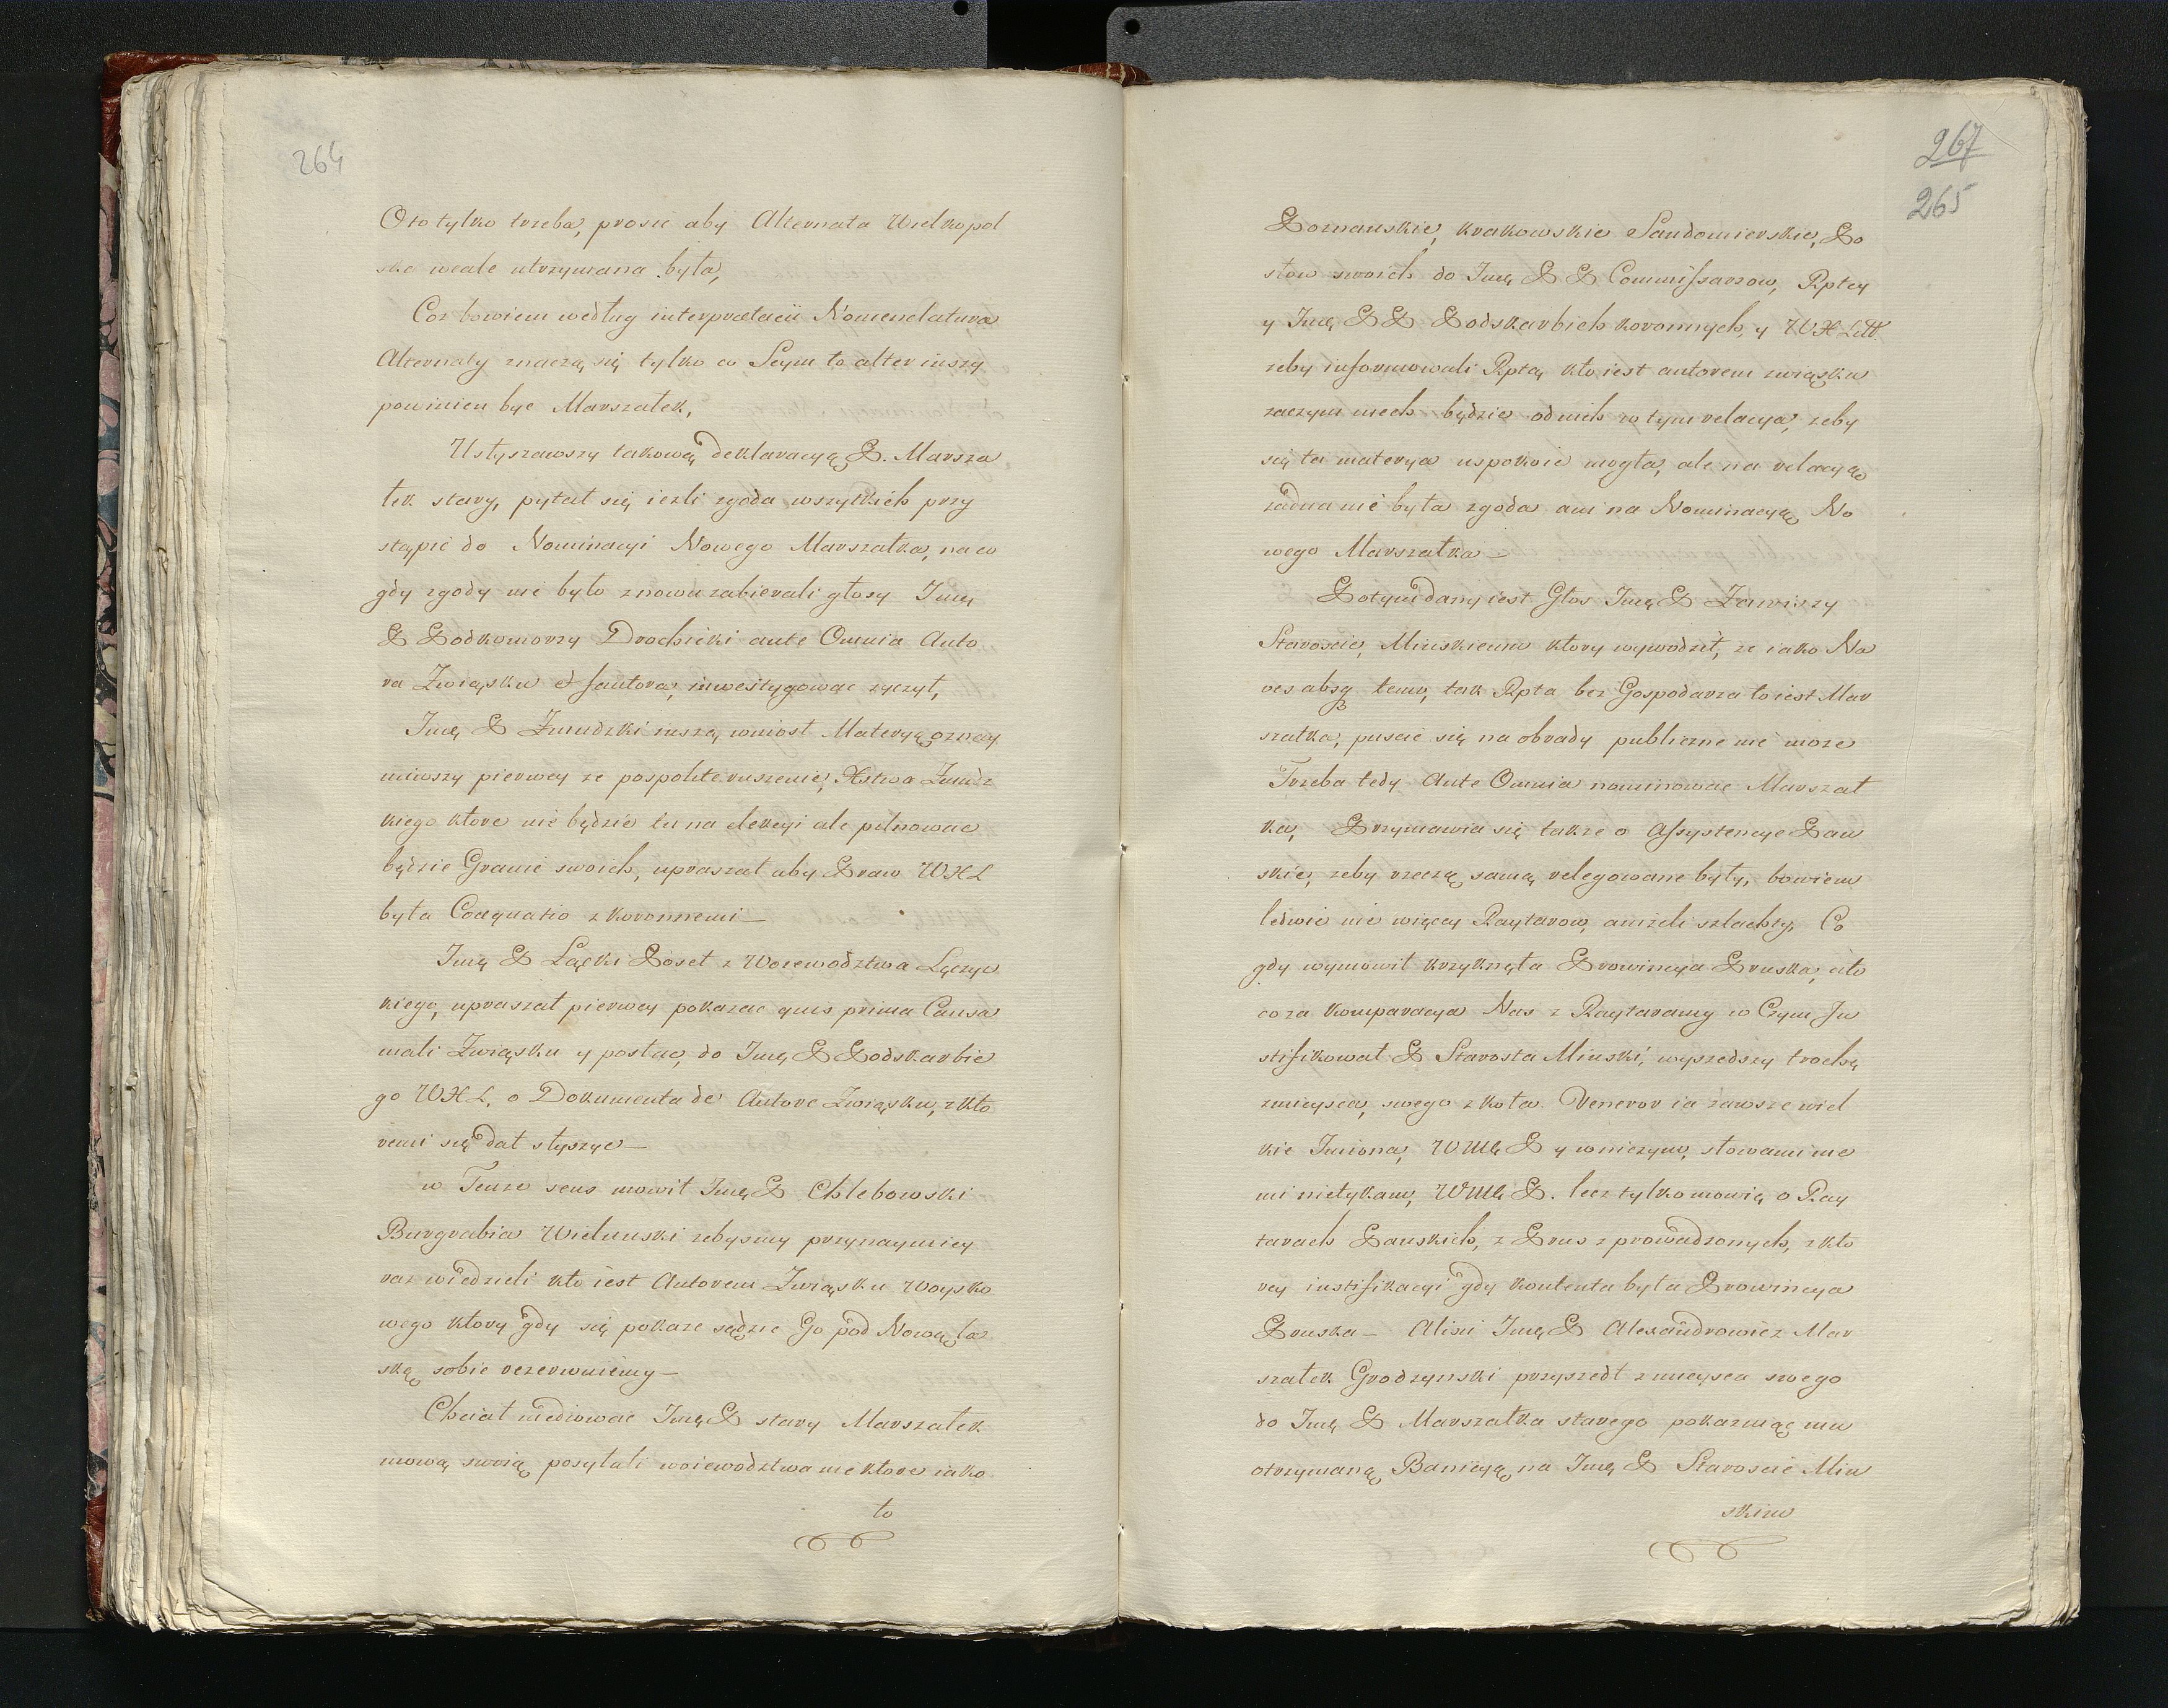 264
Oto tylko trzeba, prosic aby Alternata Wielkopol
ska wcale utrzymana była,
Coz bowiem według interpretacii Nomenclatura
Alternaty znaczą się tylko co Seym to alter inszy
powinien byc Marszałek,
Usłyszawszy takową deklaracyą P. Marsza
łek stary, pytał się iezli zgoda wszytkich przy
stąpic do Nominacyi Nowego Marszałka, na co
gdy zgody nie było znowu zabierali głosy Imę
P Podkomorzy Drochicki ante Omnia Auto
ra Związku et fautora, inwestygowac zyczył,
Imę P Zmudzki inszą wniosł Materyą oznay
miwszy pierwey ze pospolite ruszenie, Xstwa Zmudz
kiego ktore nie będzie tu na elekcyi ale pilnowac
będzie Granic swoich, upraszał aby Praw WXL
była Coaequatio z koronnemi —
Imę P Łącki Poseł z Woiewodztwa Lęczyc
kiego, upraszał pierwey pokazac quis prima Causa
mali Związku y posłac, do Imę P Podskarbie
go WXL, o Dokumenta de Autore Związku, z kto
remi się dał słyszyc —
w Tenze sens mowił Imę P Chlebowski
Burgrabia Wielunski zebysmy przynaymniey
raz wiedzieli kto iest Autorem Związku Woysko
wego ktory gdy się pokaze sądzic Go pod Nową las
ską sobie rezerwuiemy —
Chciał mediowac Imę P stary Marszałek
mową swoią, posyłali woiewodztwa niektore iako
to
267
265
Poznanskie, krakowskie Sandomierskie, Po
słow swoich do Imę P P Commissarzow, Rptey
y Imę P P Podskarbich koronnych, y WX Litt.
zeby informowali Rptą kto iest autorem związku
zaczym niech będzie od nich w tym relacya, zeby
się ta materya uspokoic mogła, ale na relacyą
zadna nie była zgoda ani na Nominacyą No
wego Marszałka —
Potym dany iest Głos Imę P Zawiszy
Staroscie, Minskiemu ktory wywodził, ze iako Na
ves absq temo, tak Rpta bez Gospodarza to iest Mar
szałka, puscic się na obrady publiczne nie moze
Trzeba tedy Ante Omnia nominowac Marszał
ka, Przymawia się takze o Assystencye Pan
skie, zeby rzeczą samą relegowane były, bowiem
ledwie nie więcey Raytarow, anizeli szlachty, Co
gdy wymowił krzyknęła Prowincya Pruska, a to
co za komparacya Nas z Raytaramy w Czym Ju
stifikował P Starosta Minski, wyszedszy trochę
zmieysca, swego z koła. Veneror ia zawsze wiel
kie Imiona, WMę P y wniczym, słowami me
mi nietykam, WMę P. lecz tylko mowię o Ray
tarach Panskich, z Prus zprowadzonych, z kto
rey iustifikacyi gdy kontenta była Prowincya
Pruska — Alisci Imę P Alexandrowicz Mar
szałek Grodzynski przyszedł zmieysca swego
do Imę P Marszałka starego pokazuiąc mu
otrzymaną Banicyą na Imę P Staroscie Min
skim